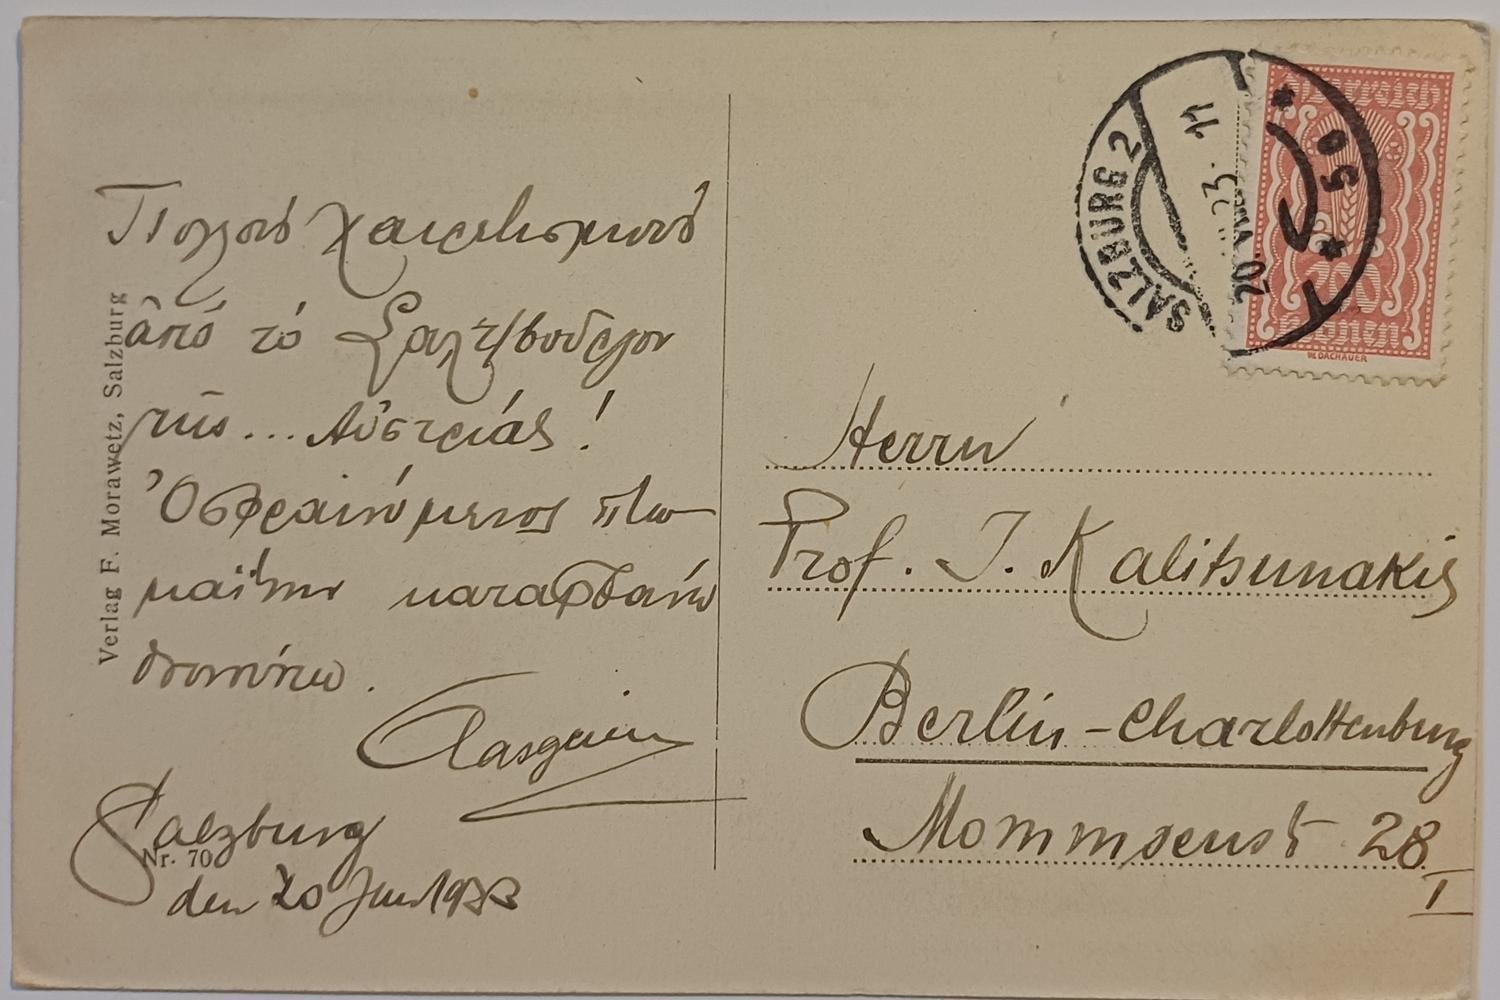 Πολλούς χαιρετισμούς
ἀπό τό Σαλτζβούργον
τῆς... Αὐστρίας!
Ὀσφραινόμενος πτω-
μαΐνην καταφθάνω
Salzburg
den 20 1923
Verlag F. Morawetz, Salzburg
Nr. 70
SALZBURG 2
20. VII. 23. 11
* 5a *
Österreich
200
Kronen
W.DACHAUER
Herrn
Prof. J. Kalitsunakis
Berlin-Charlottenburg
Mommsenst 28
I